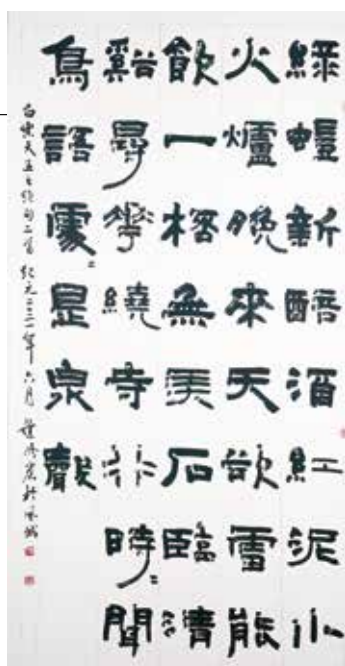 綠螘新醅酒紅泥小
火爐晚來天欲雪能
飲一桮無美石臨清
谿尋花繞寺行時〻聞
鳥語處〻是泉聲
白樂天五言絕句二首 紀元二〇一一年 六月